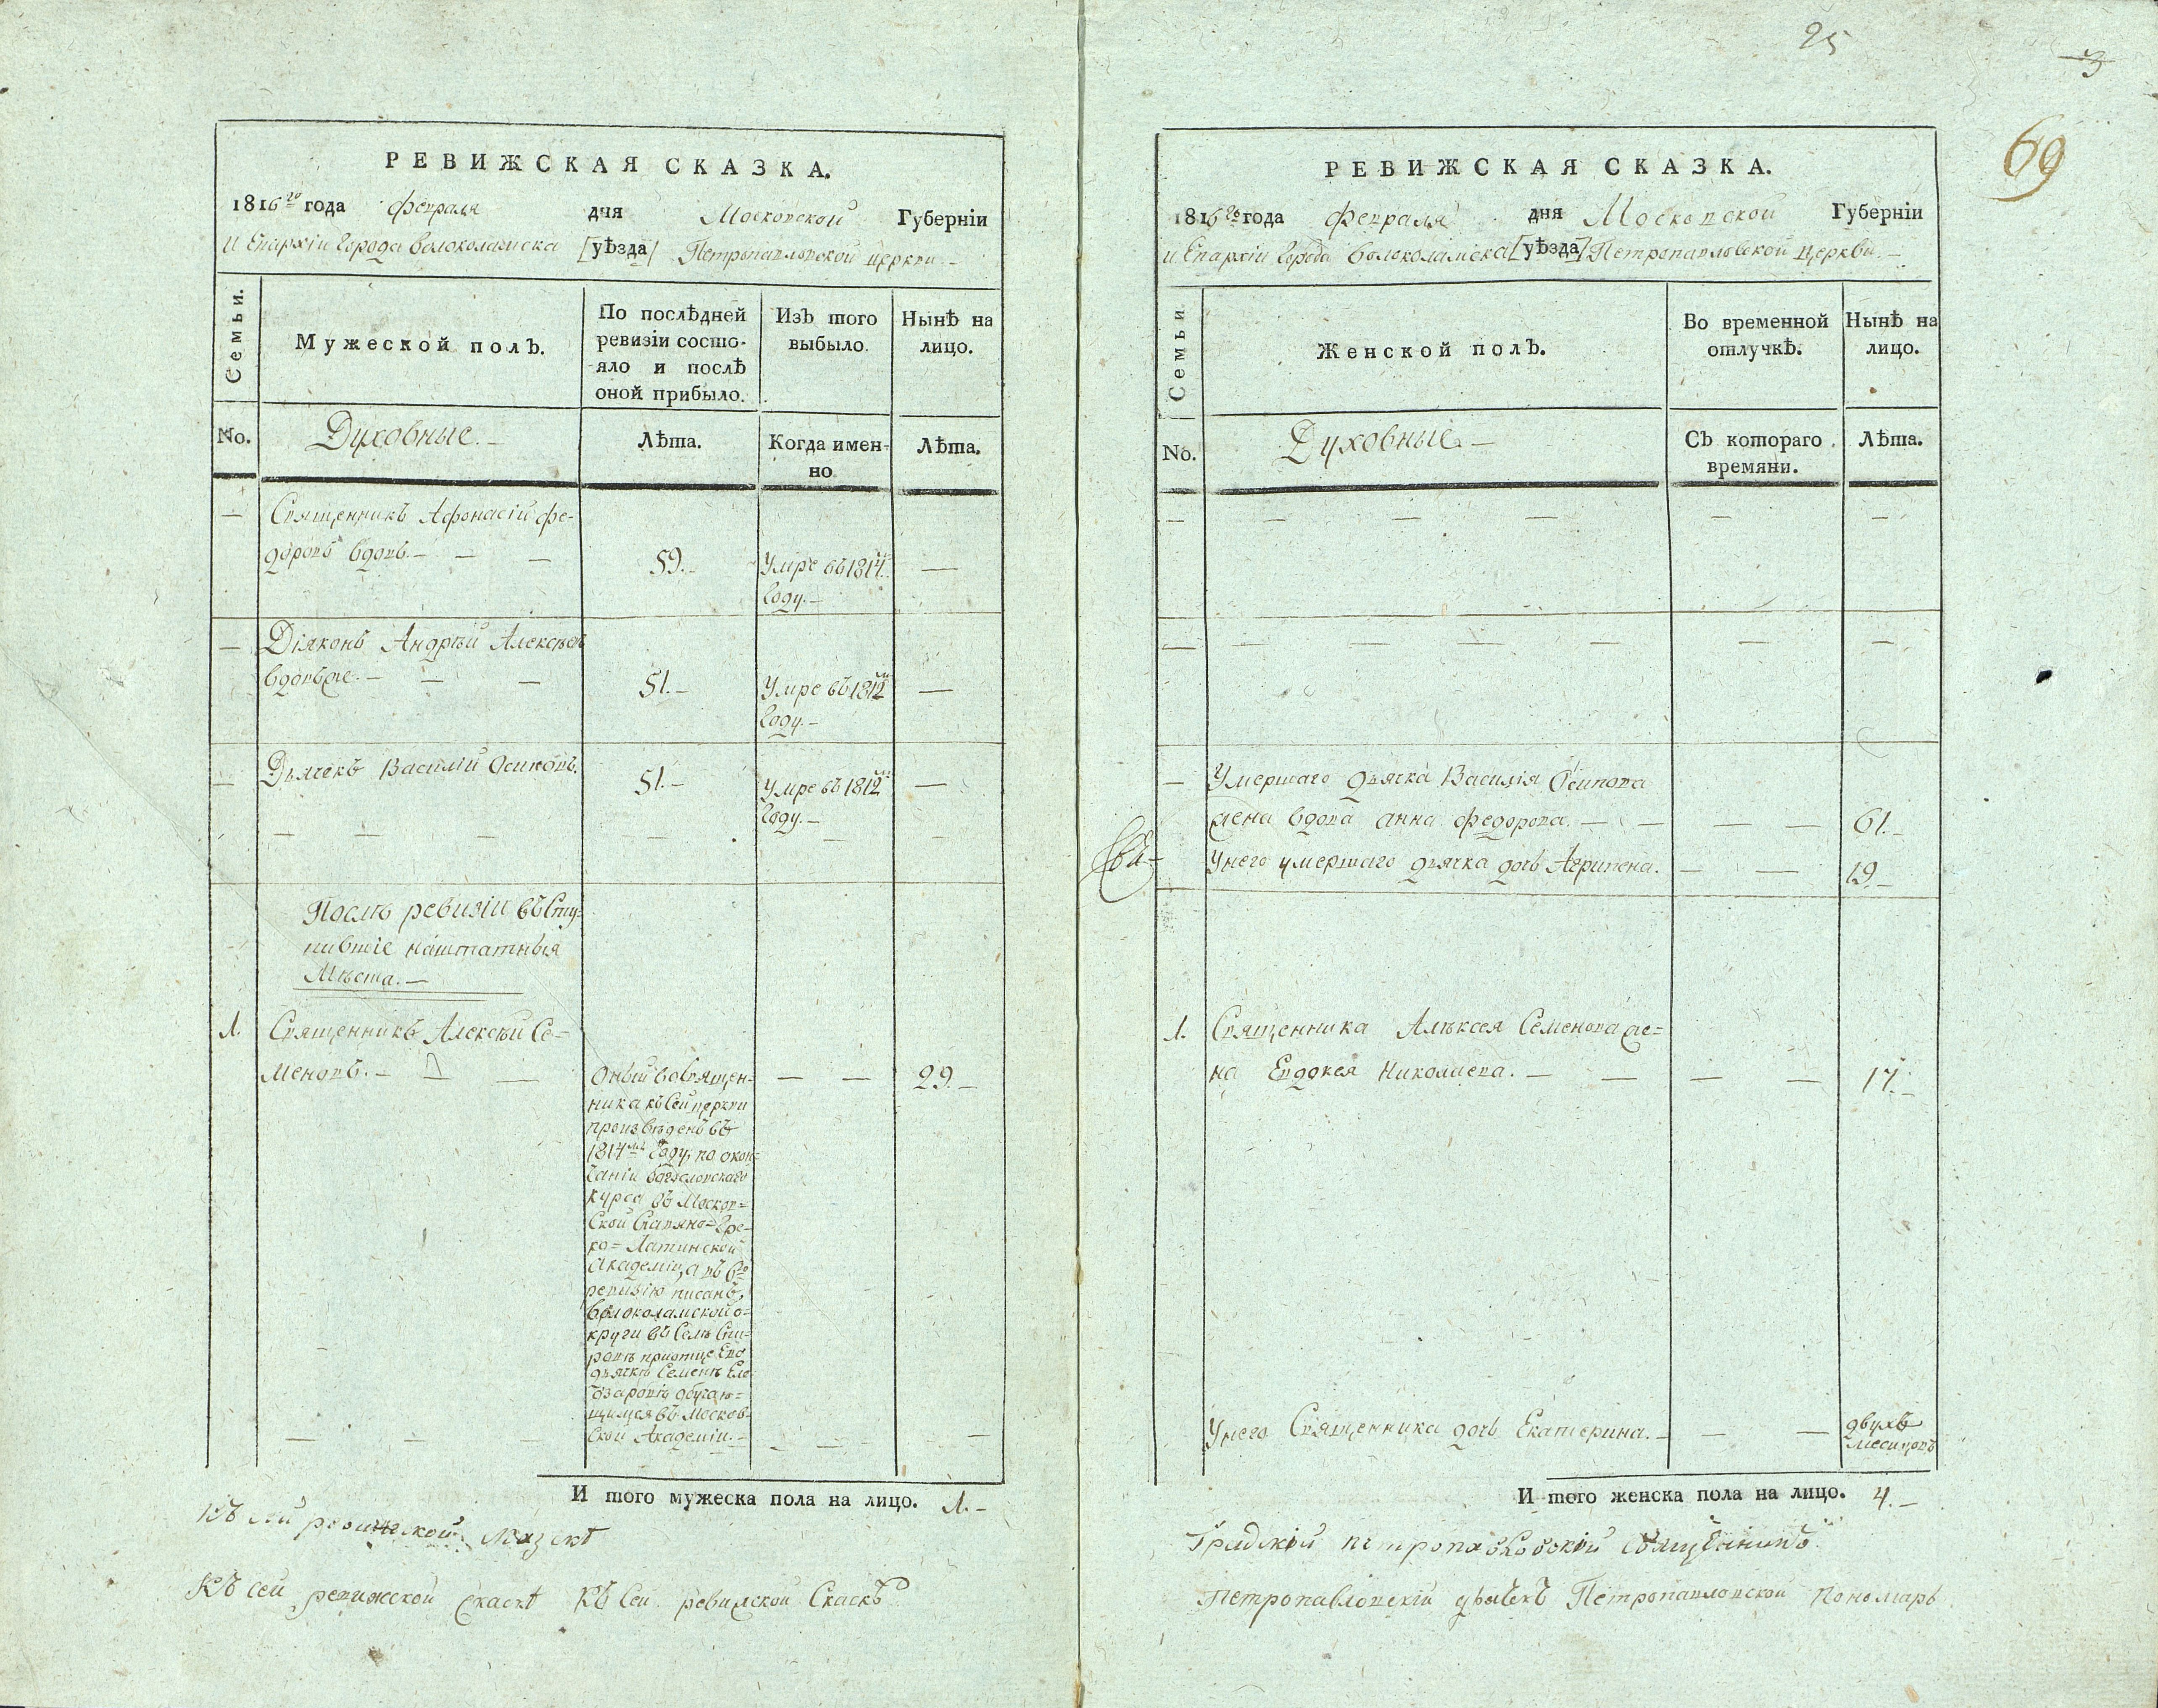 РЕВИЖСКАЯ СКАЗКА.
1816го года февраля дня Московской Губерніи
и Епархіи города Волоколамска [уѣзда] Петропавловской церкви.-
Семьи.
Мужеской полъ.
По послѣдней
ревизіи состо-
яло и послѣ
оной прибыло.
Изъ того
выбыло.
Нынѣ на
лицо.
No.
Духовные.-
Лѣта.
Когда имен-
но
Лѣта.
— Священникъ Афонасій Фе-
доровъ вдовъ.- — — 59.- Умре въ 1814м —
году.-
— Діяконъ Андрѣй Алексѣевъ
вдовъже.- — — 51.- Умре въ 1812м —
году.-
— Дьячекъ Василій Осиповъ. 51.- Умре въ 1812м —
году.-
Послѣ ревизіи въсту-
пившіе наштатныя
мѣста.-
1. Священникъ Алексѣй Се-
меновъ.- — — 29.-
Оный восвящен-
ника къ сей церкви
произвѣденъ въ
1814мъ году, по окон-
чаніи богословскаго
курса въ Москов-
ской Славяно-Гре-
ко-Латинской
Академіи, а въ 6ю
ревизію писанъ,
Волоколамской о-
круги въ селѣ Спи-
ровѣ приотце его
дьячкѣ Семенѣ Еле-
озаровѣ обучаю-
щимся въ Москов-
ской Академіи.-
И того мужеска пола на лицо. 1.-
Къ сей ревижской сказкѣ
Къ сей ревижской скаскѣ Къ сей ревижской Скаскѣ
25
3
69
РЕВИЖСКАЯ СКАЗКА.
1816го года Февраля дня Московской Губерніи
и Епархіи города Волоколамска [уѣзда] Петропавловской церкви.-
Семьи
Женской полъ.
Во временной
отлучкѣ.
Нынѣ на
лицо.
No.
Духовные.-
Съ котораго
времяни.
Лѣта.
— Умершаго дьячка Василія Осипова
жена вдова Анна Федорова.- — — — 61.-
Унего умершаго дьячка дочь Агрипена. — — 19.-
1. Священника Алѣксея Семенова же-
на Евдокея Николаева.- — — — 17.-
Унего Священника дочь Екатерина.- — — двухъ
месицовъ
И того женска пола на лицо. 4.-
Градскій петропавловскій священникъ
Петропавловскій дьячекъ Петропавловской Пономарь